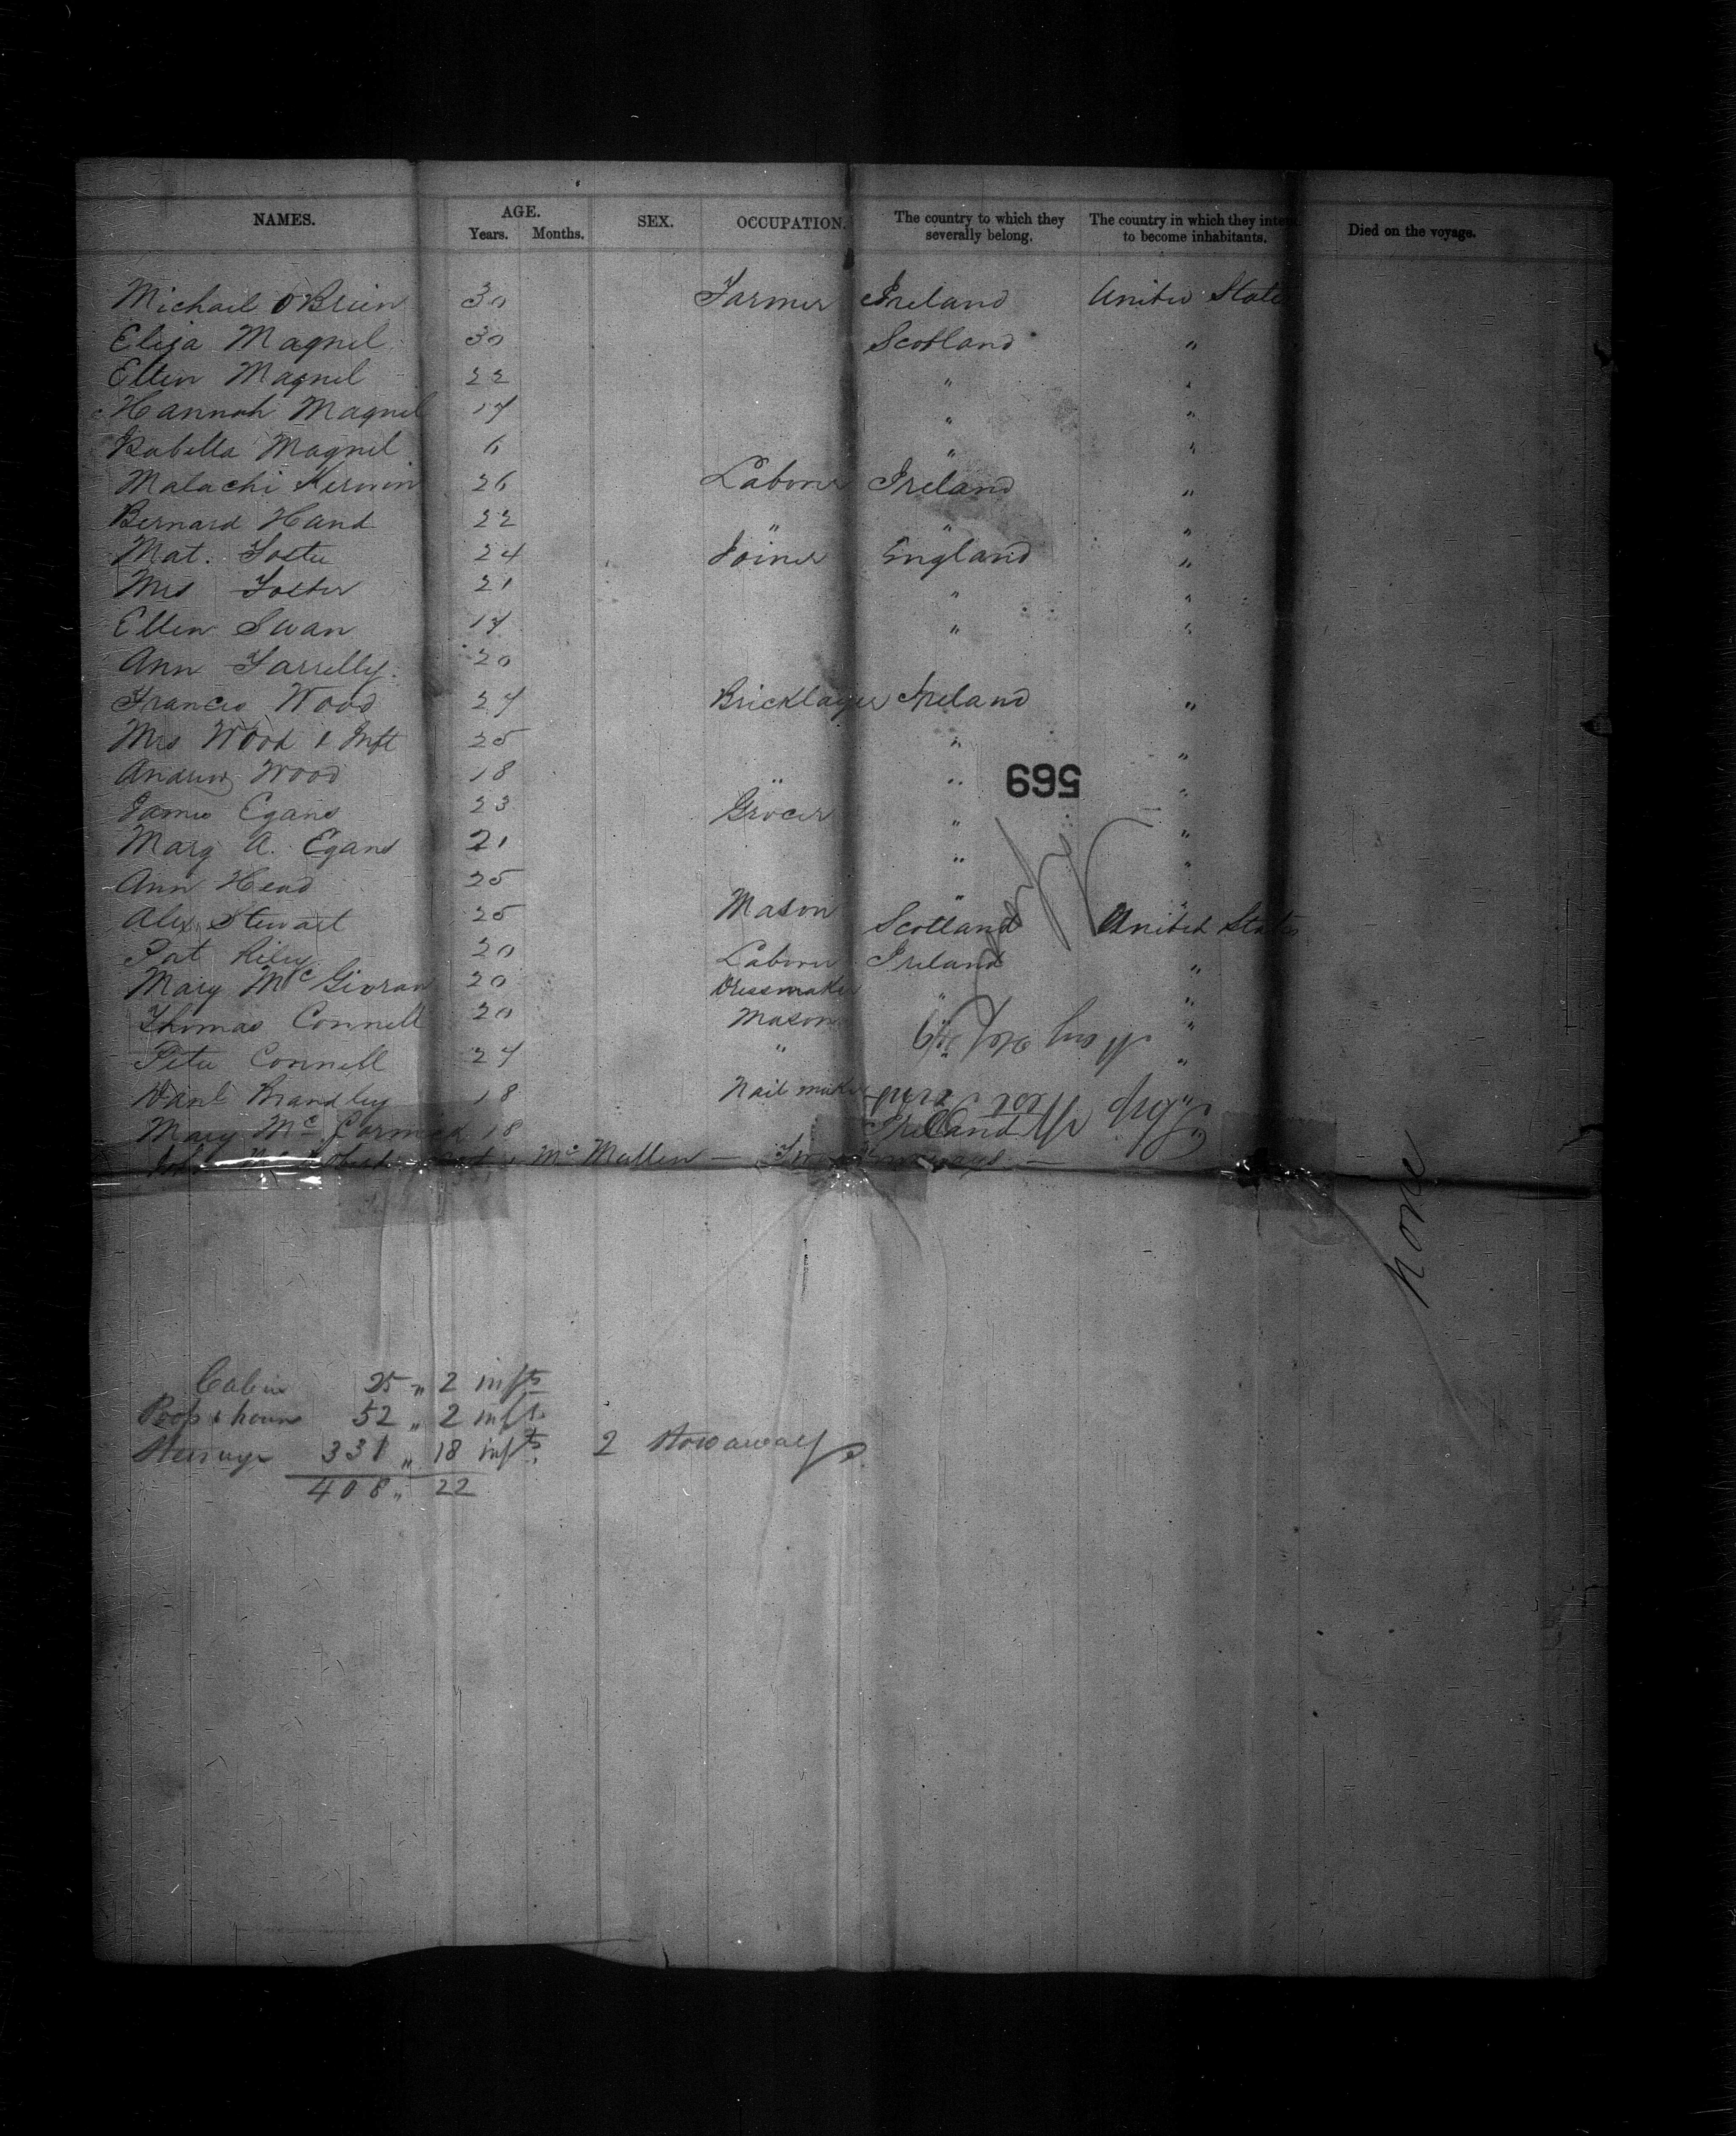 NAMES. AGE. Years. Months. SEX. OCCUPATION. The country to which they severally belong. The country in which they inten to become inhabitants. Died on the voyage.
Michael O'Brien 30 Farmer Ireland United State
Eliza Magnel 30 Scotland "
Ellen Magnel 22 " "
Hannah Magnel 17 " "
Isabella Magnel 6 " "
Malachi Kerwin 26 Laborer Ireland "
Bernard Hand 22 " " "
Mat. Foster 24 Joiner England "
Mrs Foster 21 " "
Ellen Swan 17 " "
Ann Farrelly 20
Francis Wood 27 Bricklayer Ireland "
Mrs Wood & Inft 25 " "
Andrew Wood 18 " " "
James Egans 23 Grocer " "
Mary A. Egans 21 " "
Ann Head 25 "
Alex Stewart 25 Mason Scotland United States
Pat Riley 20 Laborer Ireland "
Mary McGivran 20 Dressmaker " "
Thomas Connell 20 Mason " "
Peter Connell 27 " "
Danl Brandley 18 Nail maker "
Mary McCormick 18 Ireland
McMullen — Two Stowaways —
569
none
Cabin 25 " 2 infts
Poop & house 52 " 2 infts
Steerage 331 " 18 infts 2 Stowaways
408 " 22